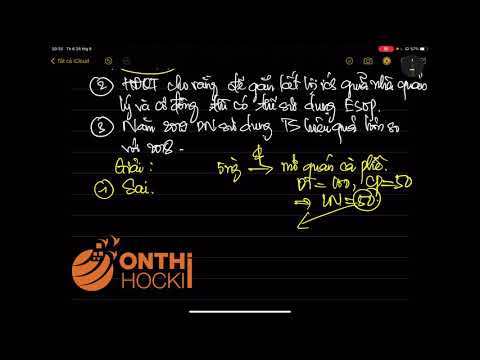 20:10 Th 6 28 thg 6
57%
Tất cả iCloud
② HĐQT cho rằng để gắn kết lợi ích giữa nhà quản
lý và cổ đông thì có thể sử dụng ESOP.
③ Năm 2019 DN sử dụng TS hiệu quả hơn so
với 2018.
Giải: 5 mở quán cà phê.
① Sai. DT = 100, CP = 50
⇒ LN = 50
ONTHi
HOCKI